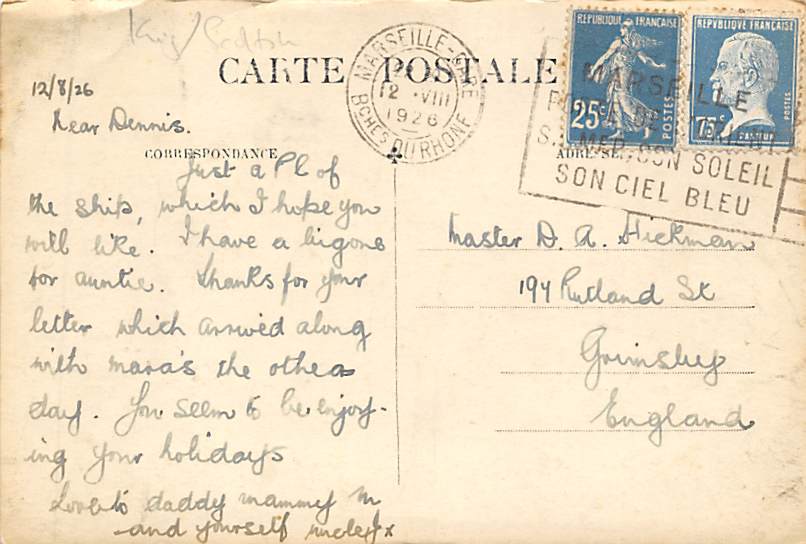 CARTE POSTALE
MARSEILLE-GARE
12 ·VIII
1926
BCHES DU RHONE
REPUBLIQUE FRANÇAISE
25c
POSTES
REPVBLIQVE FRANÇAISE
75c
POSTES
PASTEUR
MARSEILLE
SON SOLEIL
SON CIEL BLEU
12/8/26
Dear Dennis.
CORRESPONDANCE
Just a PC of
the ship, which I hope you
will like. I have a big one
for auntie. Thanks for your
letter which arrived along
with the other
day. You seem to be enjoy-
ing your holidays
Love to daddy mammy
and yourself x
Master D. A. Hickman
194 Rutland St
Grimsby
England